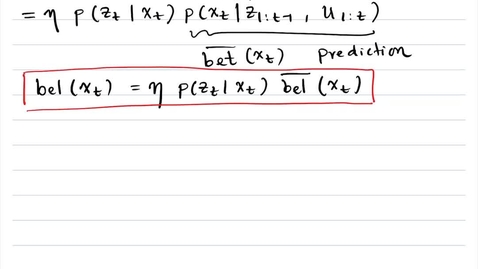 = η p(z_t | x_t) p(x_t | z_{1:t-1}, u_{1:t})
\overline{bel} (x_t) prediction
bel (x_t) = η p(z_t | x_t) \overline{bel} (x_t)